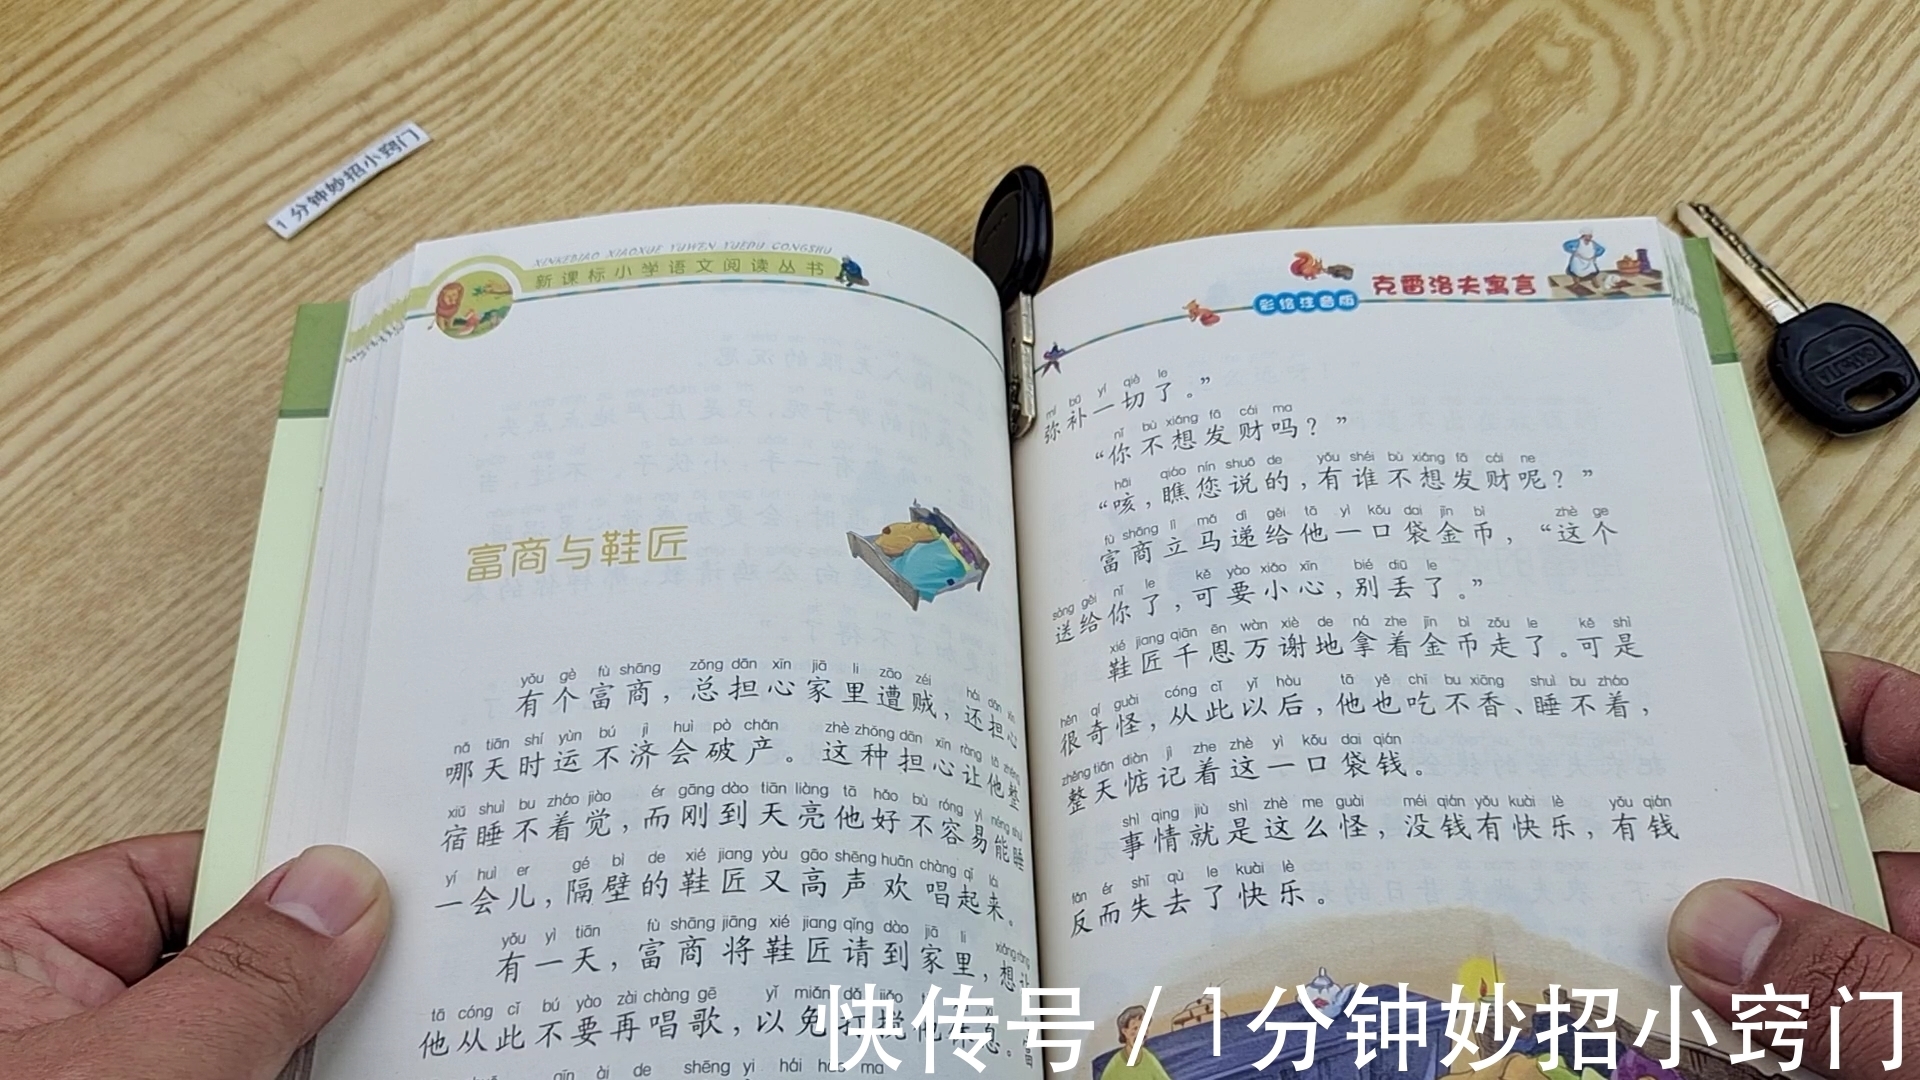 1分钟妙招小窍门
XINKEBIAO XIAOXUE YUWEN YUEDU CONGSHU
新课标小学语文阅读丛书
富商与鞋匠
yǒu gè fù shāng zǒng dān xīn jiā li zāo zéi hái dān xīn
有个富商，总担心家里遭贼，还担心
nǎ tiān shí yùn bú jì huì pò chǎn zhè zhǒng dān xīn ràng tā zhěng
哪天时运不济会破产。这种担心让他整
xiǔ shuì bu zháo jiào ér gāng dào tiān liàng tā hǎo bù róng yì néng shuì
宿睡不着觉，而刚到天亮他好不容易能睡
yí huì er gé bì de xié jiang yòu gāo shēng huān chàng qǐ lái
一会儿，隔壁的鞋匠又高声欢唱起来。
yǒu yì tiān fù shāng jiāng xié jiang qǐng dào jiā li xiǎng ràng
有一天，富商将鞋匠请到家里，想让
tā cóng cǐ bú yào zài chàng gē yǐ miǎn dǎ jiǎo
他从此不要再唱歌，以免打搅他休息。富
qīn ài de shēng yi hái hǎo ma
克雷洛夫寓言
彩绘注音版
mí bǔ yí qiè le
弥补一切了。”
nǐ bù xiǎng fā cái ma
“你不想发财吗？”
hāi qiáo nín shuō de yǒu shéi bù xiǎng fā cái ne
“咳，瞧您说的，有谁不想发财呢？”
fù shāng lì mǎ dì gěi tā yì kǒu dai jīn bì zhè ge
富商立马递给他一口袋金币，“这个
sòng gěi nǐ le kě yào xiǎo xīn bié diū le
送给你了，可要小心，别丢了。”
xié jiang qiān ēn wàn xiè de ná zhe jīn bì zǒu le kě shì
鞋匠千恩万谢地拿着金币走了。可是
hěn qí guài cóng cǐ yǐ hòu tā yě chī bu xiāng shuì bu zháo
很奇怪，从此以后，他也吃不香、睡不着，
zhěng tiān diàn jì zhe zhè yì kǒu dai qián
整天惦记着这一口袋钱。
shì qing jiù shì zhè me guài méi qián yǒu kuài lè yǒu qián
事情就是这么怪，没钱有快乐，有钱
fǎn ér shī qù le kuài lè
反而失去了快乐。
快传号 / 1分钟妙招小窍门